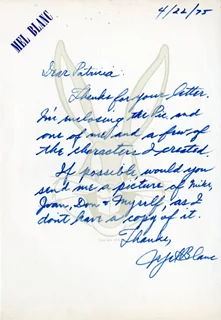 MEL BLANC
4/22/75
Dear Patricia:
Thanks for your letter.
I'm enclosing the Pic. and
one of me and a few of
the characters I created.
If possible would you
send me a picture of Mike,
Joan, Don & Myself, as I
don't have a copy of it.
Thanks,
Mel Blanc